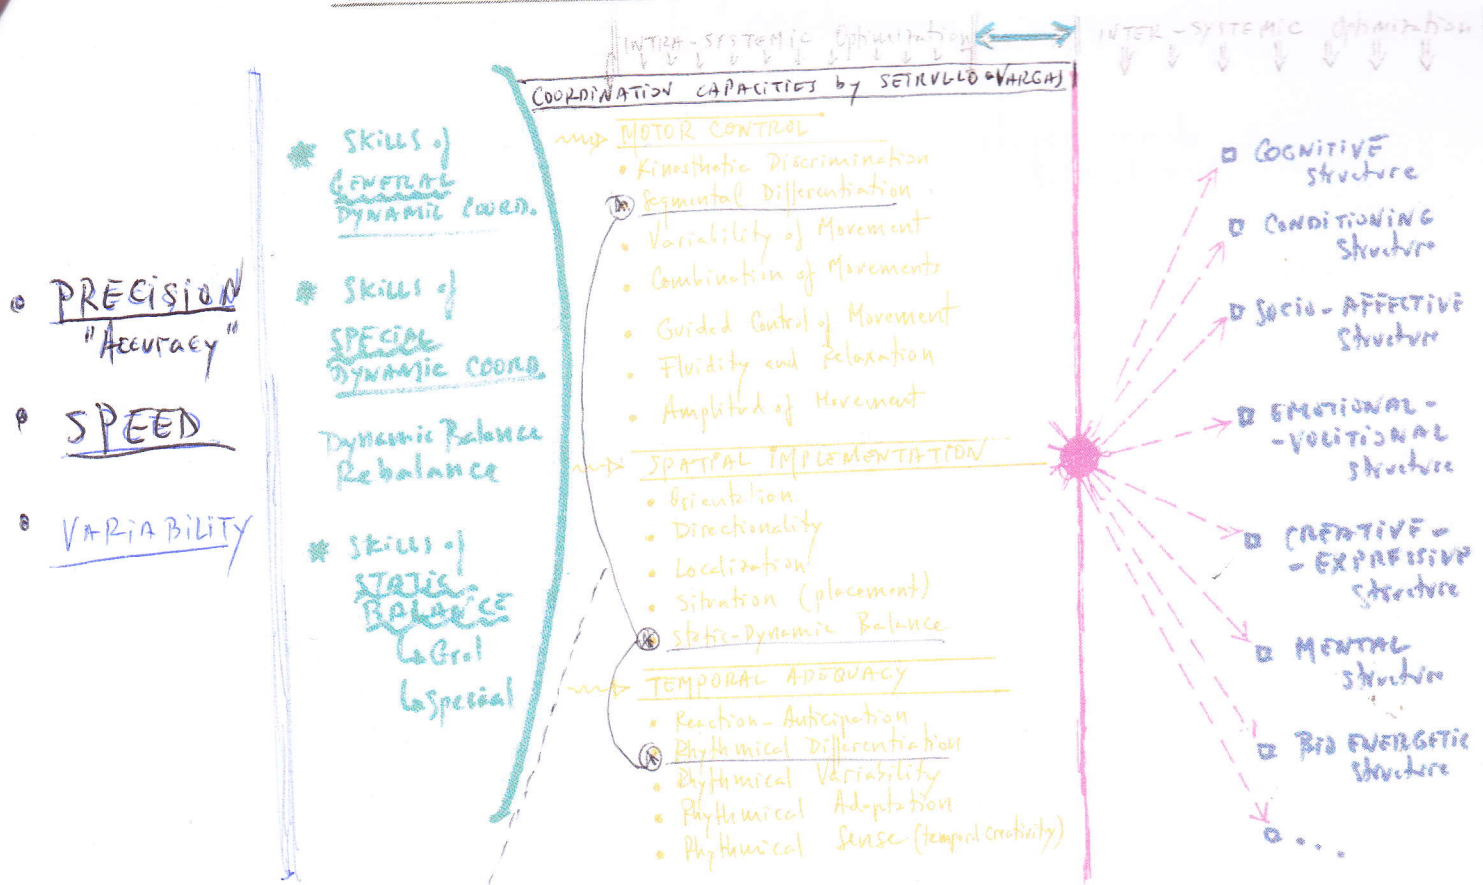 INTRA-SYSTEMIC Optimization
INTER-SYSTEMIC Optimization
COORDINATION CAPACITIES by SEIRVLLO-VARGAS
• PRECISION
"Accuracy"
• SPEED
• VARIABILITY
* SKILLS of
GENERAL
DYNAMIC COORD.
* SKILLS of
SPECIAL
DYNAMIC COORD.
Dynamic Balance
Rebalance
* SKILLS of
STATIC-
BALANCE
↳ Gral
↳ Special
MOTOR CONTROL
• Kinesthetic Discrimination
Segmental Differentiation
• Variability of Movement
• Combination of Movements
• Guided Control of Movement
• Fluidity and Relaxation
• Amplitud of Movement
SPATIAL IMPLEMENTATION
• Orientation
• Directionality
• Localization
• Situation (placement)
Static-Dynamic Balance
TEMPORAL ADEQUACY
• Reaction-Anticipation
Rhythmical Differentiation
• Rhythmical Variability
• Rhythmical Adaptation
• Rhythmical Sense (temporal creativity)
COGNITIVE
structure
CONDITIONING
structure
SOCIO-AFFECTIVE
structure
EMOTIONAL-
-VOLITIONAL
structure
CREATIVE-
-EXPRESSIVE
structure
MENTAL
structure
BIO ENERGETIC
structure
...